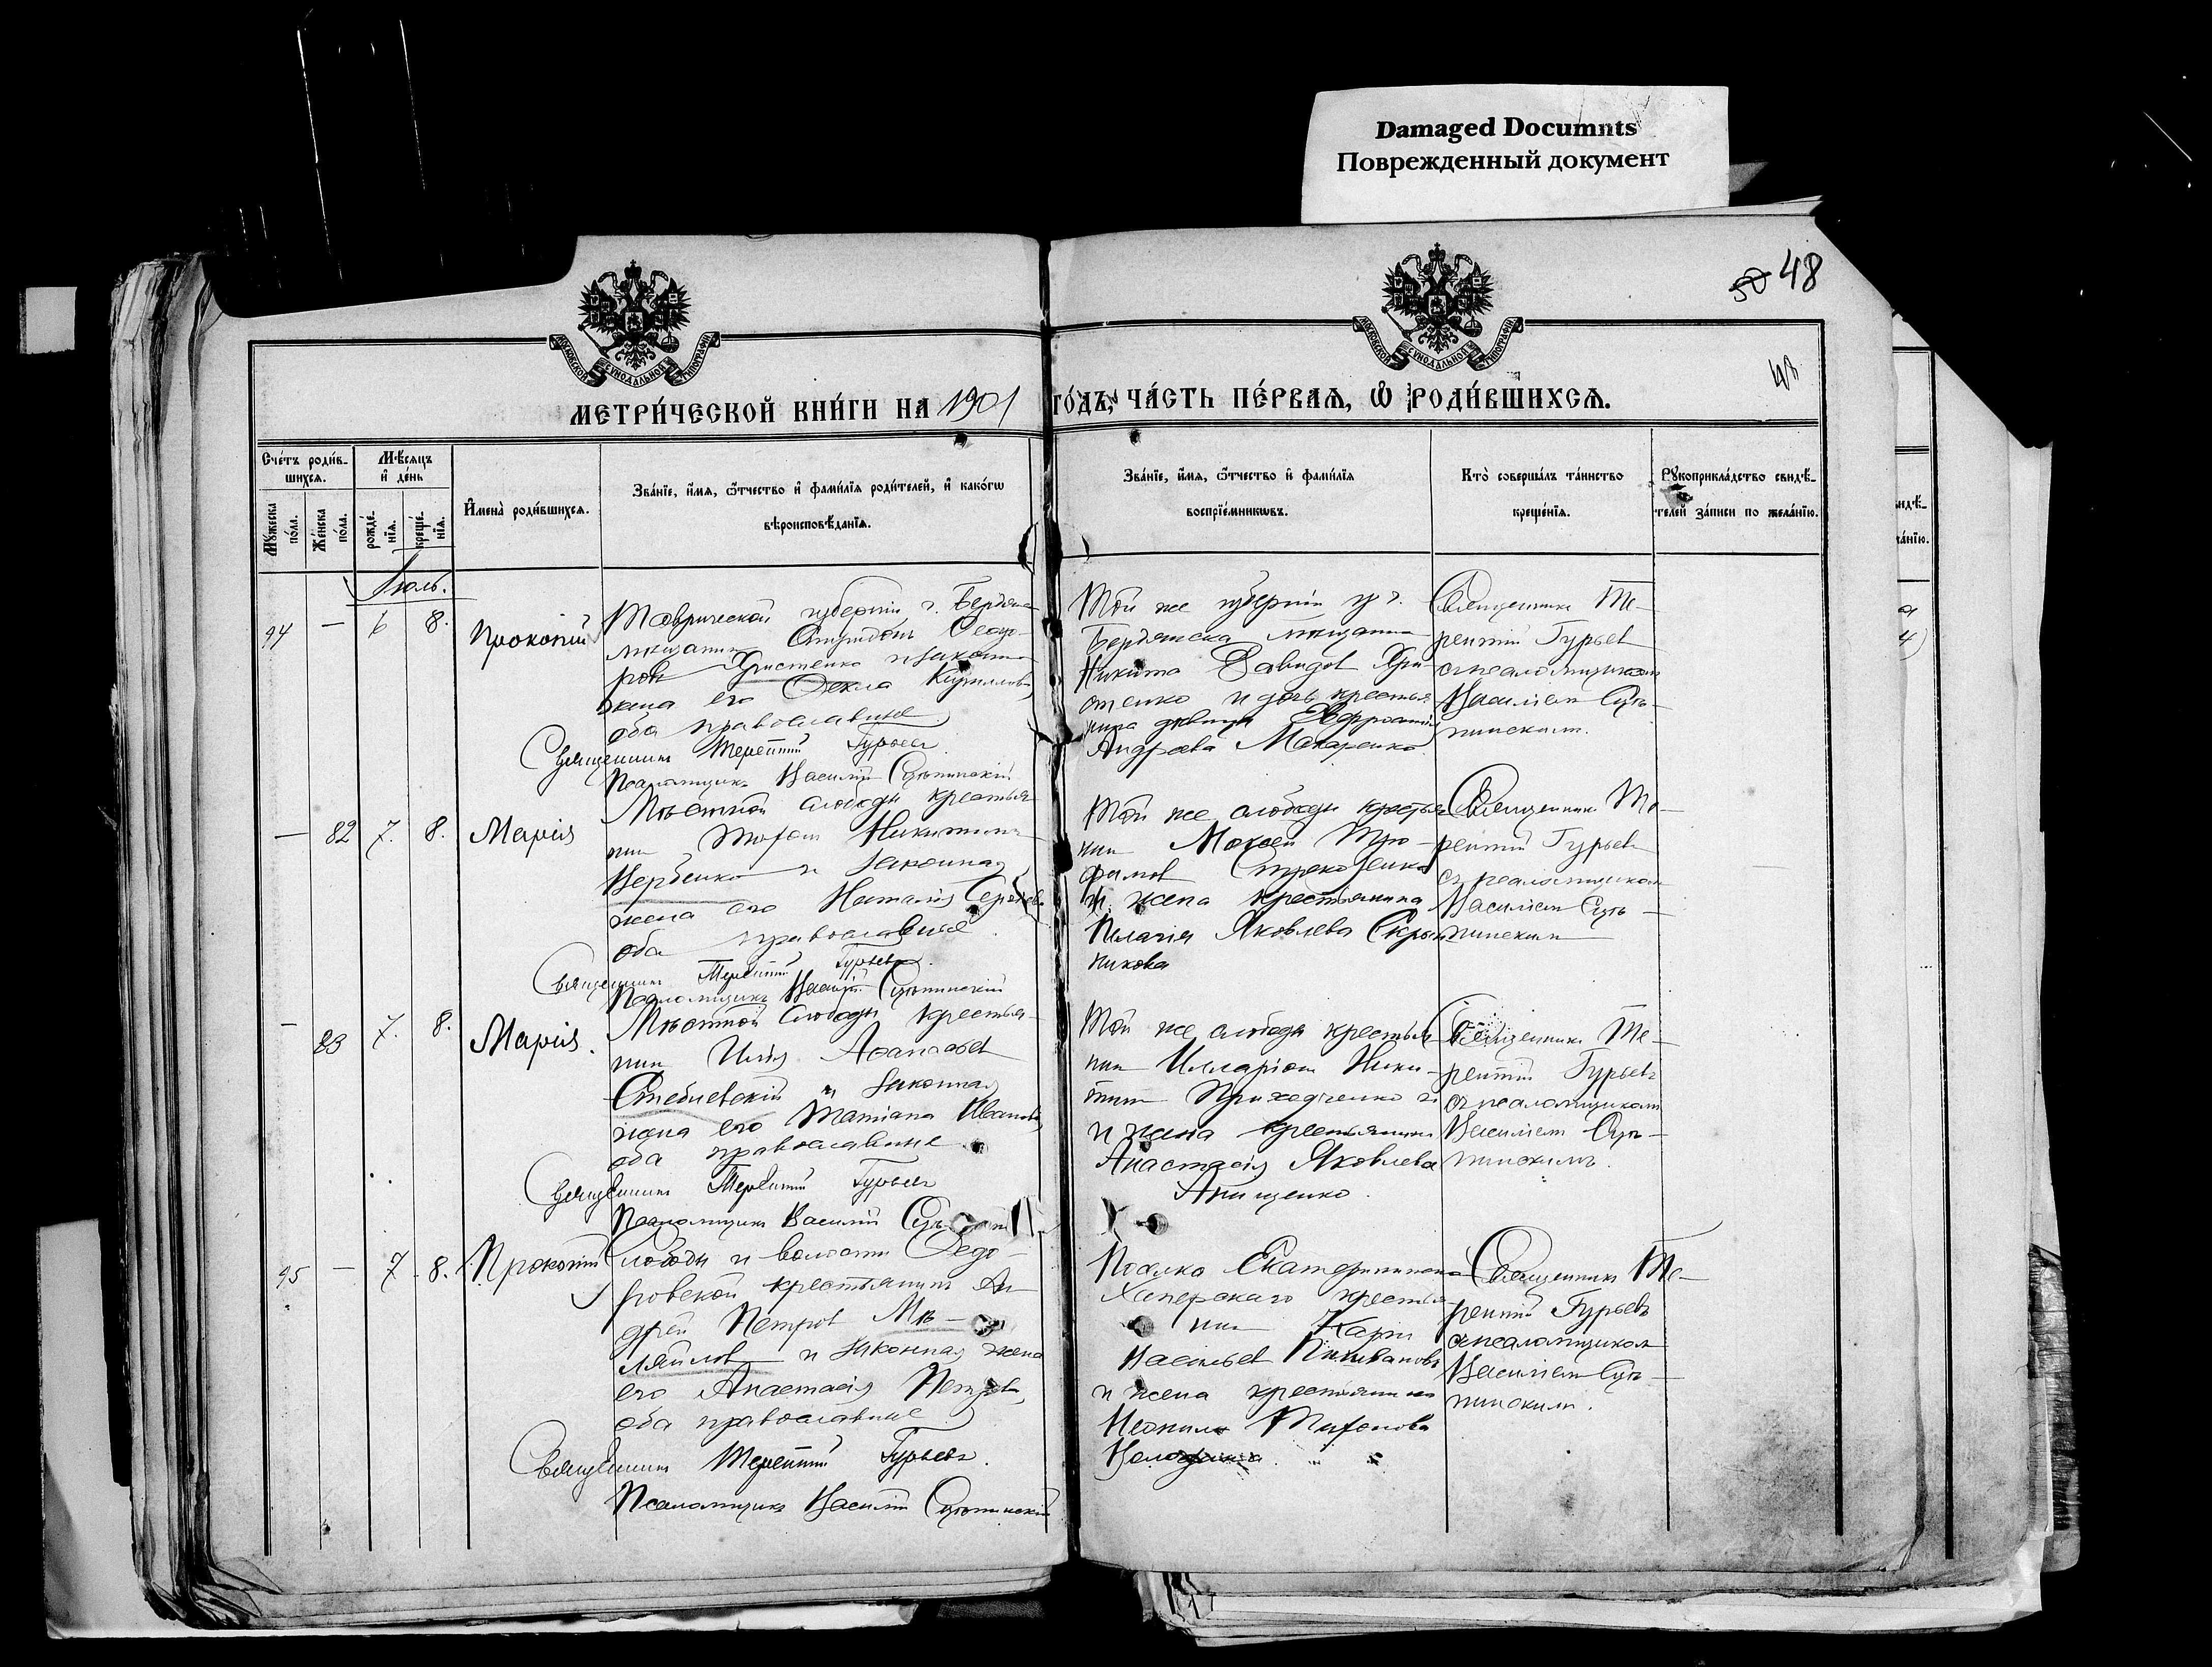 Damaged Documnts
Поврежденный документ
50 48
48
МОСКОВСКОЙ СУНОДАЛЬНОЙ ТИПОГРАФІИ
МОСКОВСКОЙ СУНОДАЛЬНОЙ ТИПОГРАФІИ
МЕТРИ́ЧЕСКОЙ КНИ́ГИ НА 1901 ГО́ДЪ, ЧА́СТЬ ПЕ́РВАѦ, Ѡ҆ РОДИ́ВШИХСѦ.
Сче́тъ роди́в-
шихсѧ.
Мѣ́сѧцъ
и҆ де́нь
Мꙋ́жеска по́ла.
Же́нска по́ла.
рожде́-нїѧ.
креще́-нїѧ.
И҆мена̀ роди́вшихсѧ.
Зва́нїе, и҆́мѧ, ѻ҆́тчество и҆ фами́лїѧ роди́телей, и҆ како́гѡ
вѣроисповѣ́данїѧ.
Зва́нїе, и҆́мѧ, ѻ҆́тчество и҆ фами́лїѧ
воспрїе́мникѡвъ.
Кто̀ соверша́лъ та́инство
креще́нїѧ.
Рꙋкоприкла́дство свидѣ́-
телей за́писи по жела́нїю.
Іюль.
94 — 6 8. Прокопій
Таврической губерніи г. Бердянска
мѣщанинъ Ѳеодо-
ров Христенко и законна
жена его Ѳекла Кириллова
оба православные
Священникъ Терентій Гурьевъ
Псаломщикъ Василій Сцепинскій
Той же губерніи и г.
Бердянска мѣщанинъ
Никита Давидов Хри-
стенко и дочь крестья
нина девица Евфросинія
Андреева Макаренко
Священникъ Те-
рентій Гурьевъ
съ псаломщикомъ
Василіем Сце-
пинскимъ.
— 82 7. 8. Марія
Мѣстной слободы крестья
нин Тихон Никитинъ
Вербенко и законная
жена его Наталія Сергѣева
оба православные
Священникъ Терентій Гурьевъ.
Псаломщикъ Василій Сцепинскій
Той же слободы крестья
нин Моисей Тро-
фимов
и жена крестьянина
Пелагія Яковлева Скрын
никова
Священникъ Те-
рентій Гурьевъ
съ псаломщикомъ
Василіем Сце-
пинскимъ
— 83 7. 8. Марія.
Мѣстной слободы крестья-
нин Илія Афанасьев
Стеблевскій и законная
жена его Татіана Иванова
оба православные.
Священникъ Терентій Гурьевъ
Псаломщикъ Василій
Той же слободы крестья
нин Илларіон Ники-
тин Приходченко
и жена крестьянина
Анастасія Яковлева
Анищенко.
Священникъ Те-
рентій Гурьевъ
съ псаломщикомъ
Василіем Сце-
пинскимъ.
95 — 7 8. Прокопій
Слободы и волости Ѳедо-
ровской крестьянин Ан
дрей Петров Мѣ-
ляйлов и законная жена
его Анастасія Петрова,
оба православные
Священникъ Терентій Гурьевъ.
Псаломщикъ Василій Сцепинскій
Поселка Екатерининска
Хаперскаго крестья-
нин Карп
Васильев
и жена крестьянина
Неонила Тихонова
Священникъ Те-
рентій Гурьевъ
съ псаломщиком
Василіем Сце-
пинскимъ.